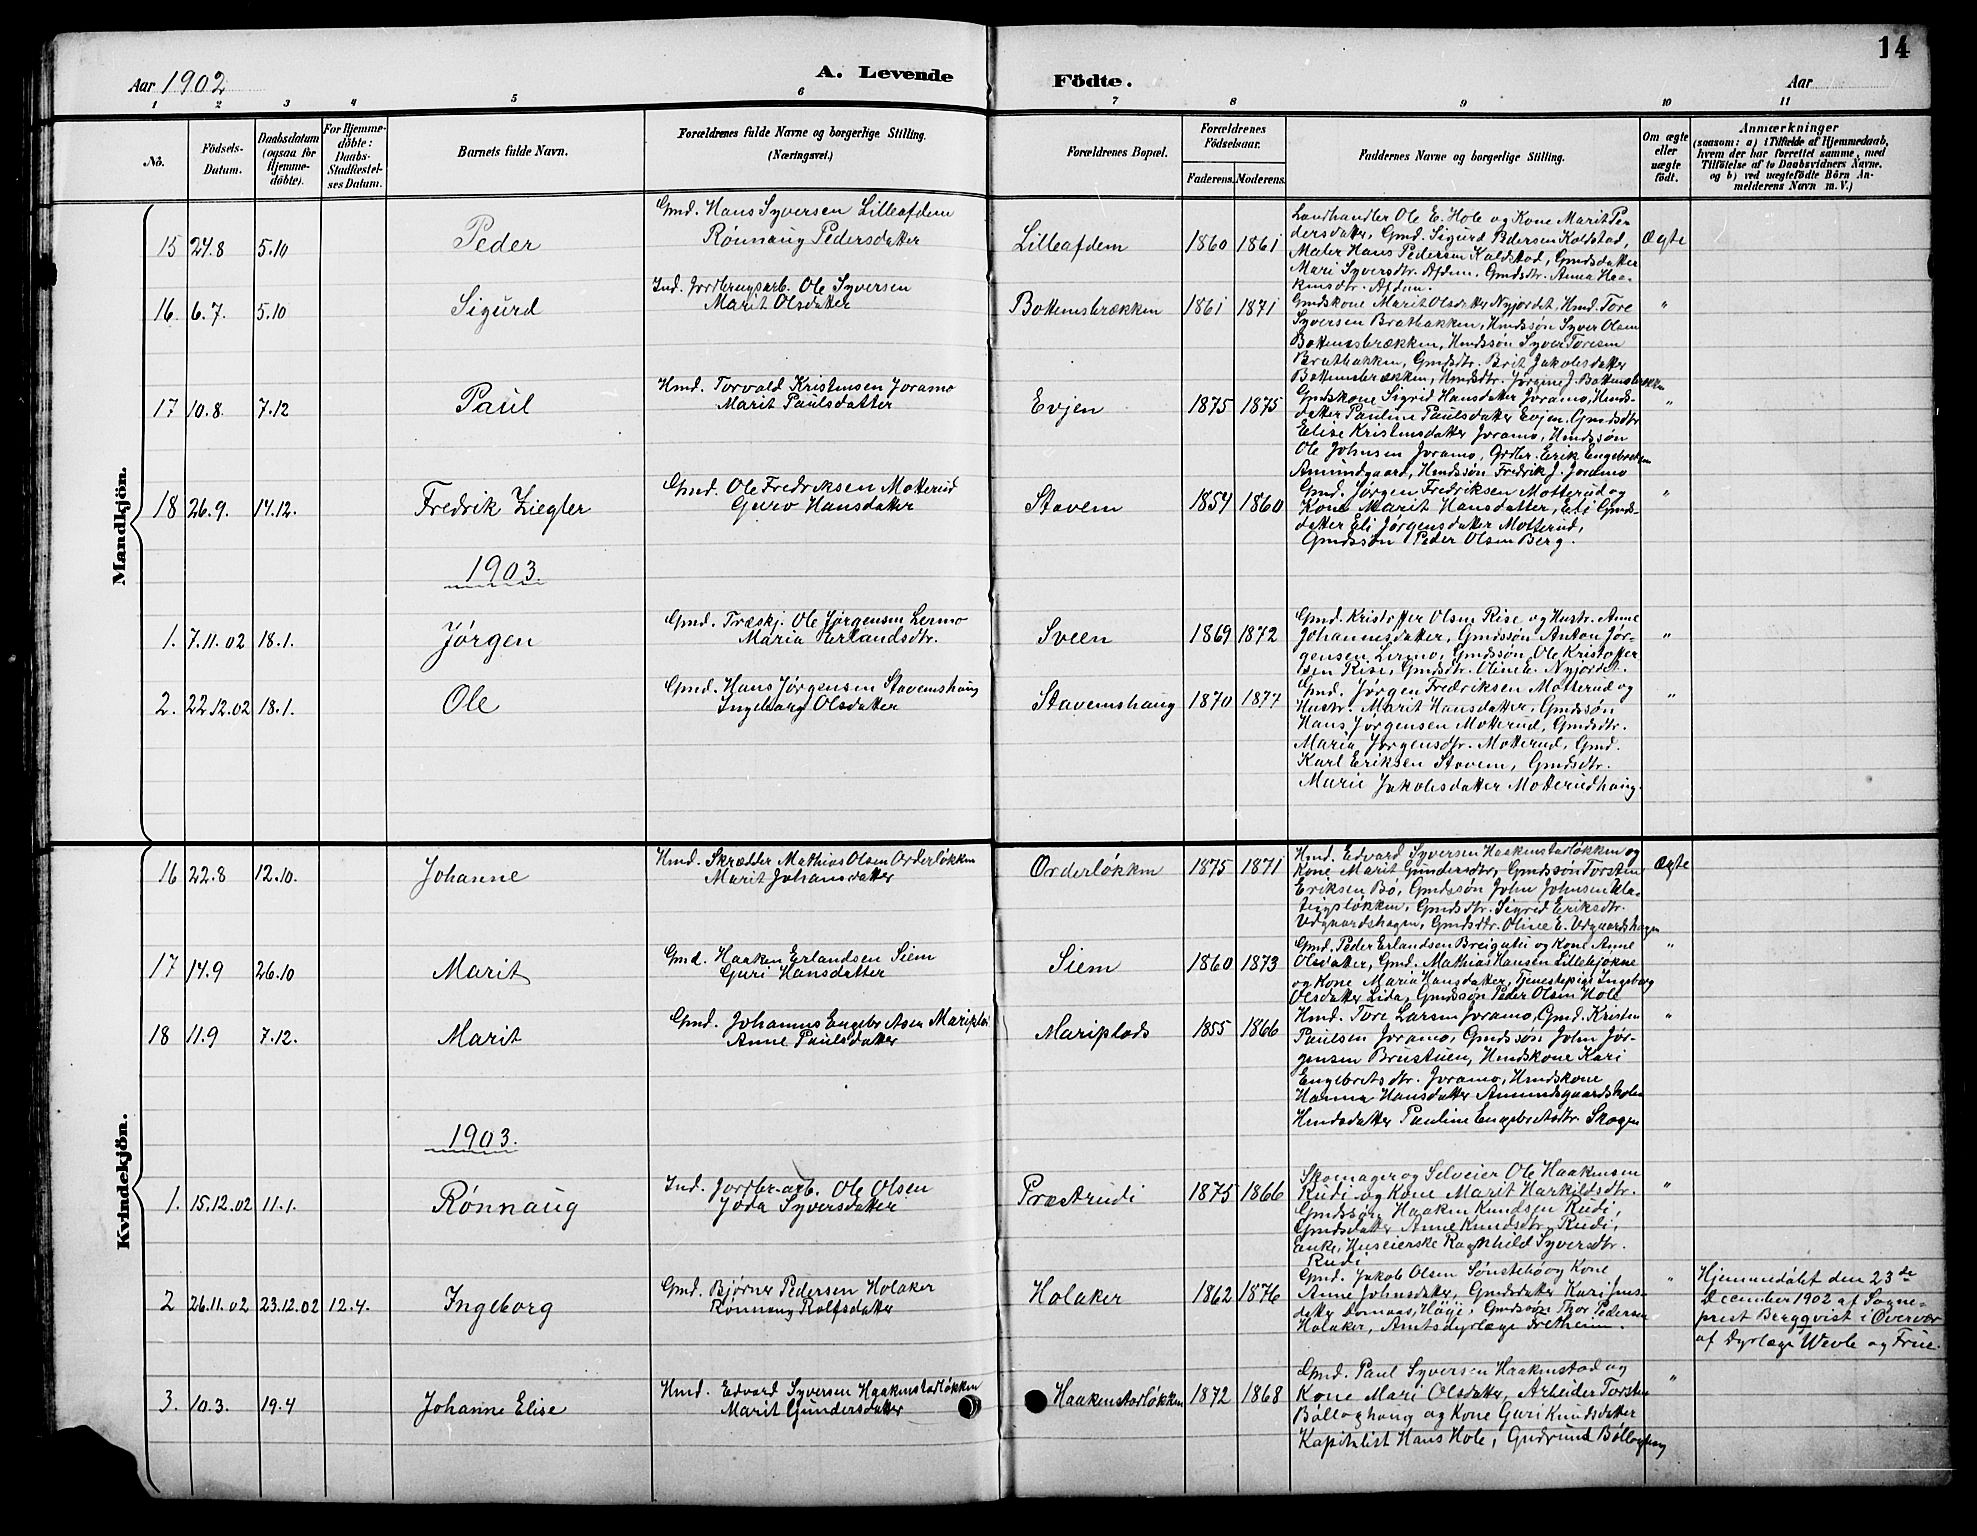 14
Aar 1902
A. Levende
Födte.
Aar
1 2 3 4 5 6 7 8 9 10 11
No.
Födsels-
Datum.
Daabsdatum
(ogsaa for
Hjemme-
döbte).
For Hjemme-
döbte:
Daabs-
Stadfæstel-
ses Datum.
Barnets fulde Navn.
Forældrenes fulde Navne og borgerlige Stilling.
(Næringsvei.)
Forældrenes Bopæl.
Forældrenes
Födselsaar.
Faderens. Moderens.
Faddernes Navne og borgerlige Stilling.
Om ægte
eller
uægte
født.
Anmærkninger
(saasom: a) i Tilfælde af Hjemmedaab,
hvem der har forrettet samme, med
Tilföielse af to Daabsvidners Navne,
og b) ved uægtefödte Börn An-
melderens Navn m. V.)
Mandkjön.
15 24.8 5.10 Peder
Gmd. Hans Syversen Lilleafdem
Rønnaug Pedersdatter
Lilleafdem 1860 1861
Landhandler Ole E. Hole og Kone Marit Pe-
dersdatter, Gmd. Sigurd Pedersen Koldstad,
Maler Hans Pedersen Koldstad, Gmdsdatter
Mari Syversdtr. Afdem. Gmdsdtr. Anna Haa-
kensdtr. Afdem.
Ægte
16. 6.7. 5.10 Sigurd
Ind. Jordbrugsarb. Ole Syversen
Marit Olsdatter
Bottemsbrækken 1861 1871
Gmdskone Marit Olsdatter Nyjordet, Hmd. Tore
Syversen Bratbakken, Hmdssøn Syver Olsen
Bottemsbrækken, Hmdssøn Syver Toresen
Bratbakken, Gmdsdtr. Brit Jakobsdatter
Bottemsbrækken, Hmdsdtr. Jørgine J. Bottemsbrækken
"
17 10.8. 7.12 Paul
Hmd. Torvald Kristensen Joramo
Marit Paulsdatter
Evjen 1875 1875
Gmdskone Sigrid Hansdatter Joramo, Hmds-
datter Pauline Paulsdatter Evjen. Gmdsdtr.
Elise Kristensdatter Joramo, Hmdssøn
Ole Johnsen Joramo, Grdbr. Erik Engebretsen
Amundgaard, Hmdssøn Fredrik J. Joramo
"
18 26.9. 14.12. Fredrik Ziegler
Gmd. Ole Fredriksen Motterud
Guro Hansdatter
Stavem 1854 1860
Gmd. Jørgen Fredriksen Motterud og
Kone Marit Hansdatter, Eli Gmds-
datter Eli Jørgensdatter Motterud,
Gmdssøn Peder Olsen Berg.
"
1903.
1. 7.11.02 18.1. Jørgen
Gmd. Træskj. Ole Jørgensen Lermo
Maria Erlandsdtr.
Sveen 1869 1872
Gmd. Kristoffer Olsen Rise og Hustr. Anne
Johannesdatter, Gmdssøn Anton Jør-
gensen Lermo, Gmdssøn Ole Kristoffer
sen Rise, Gmdsdtr. Oline E. Nyjordet.
"
2. 22.12.02 18.1. Ole
Gmd. Hans Jørgensen Stavemshaug
Ingeborg Olsdatter
Stavemshaug 1870 1877
Gmd. Jørgen Fredriksen Motterud og
Hustr. Marit Hansdatter, Gmdssøn
Hans Jørgensen Motterud, Gmdsdtr.
Maria Jørgensdtr. Motterud, Gmd.
Karl Eriksen Stavem, Gmdsdtr.
Marie Jakobsdatter Motterudhaug.
"
Kvindekjön.
16 22.8 12.10. Johanne
Hmd. Skrædder Mathias Olsen Orderløkken
Marit Johansdatter
Orderløkken 1875 1871
Hmd. Edvard Syversen Haakenstadløkken og
Kone Marit Gundersdtr, Gmdssøn Torsten
Eriksen Bø, Gmdssøn John Johnsen
Gmdsdtr. Sigrid Eriksdtr.
Udgaardshagen, Gmdsdtr. Oline E. Udgaardshagen
Ægte
17 14.9 26.10 Marit
Gmd. Haaken Erlandsen Siem
Guri Hansdatter
Siem 1860 1873
Gmd. Peder Erlandsen Breigatu og Kone Anne
Olsdatter, Gmd. Mathias Hansen Lillebjøkne
og Kone Maria Hansdatter, Tjenestepige Ingeborg
Olsdatter Lida, Gmdssøn Peder Olsen Hole
"
18 11.9 7.12. Marit
Gmd. Johannes Engebretsen Mariplas
Anne Paulsdatter
Mariplads 1855 1866
Hmd. Tore Larsen Joramo, Gmd. Kristen
Paulsen Joramo, Gmdssøn John Jør-
gensen Brustuen, Hmdskone Kari
Engebretsdtr. Joramo, Hmdskone
Hanna Hansdatter Amundsgaardsholen
Hmdsdatter Pauline Engebretsdtr. Skogen
"
1903.
1. 15.12.02 11.1. Rønnaug
Ind. Jordbr.arb. Ole Olsen
Joda Syversdatter
Præstrudi 1875 1866
Skomager og Selveier Ole Haakensen
Rudi og Kone Marit Harkildsdtr.
Gmdssøn Haaken Knudsen Rudi,
Gmdsdatter Anne Knudsdtr. Rudi,
Enke, Huseierske Ragnhild Syversdtr.
Rudi
"
2 26.11.02 23.12.02 12.4. Ingeborg
Gmd. Bjørner Pedersen Holaker
Rønnaug Rolfsdatter
Holaker 1862 1876
Gmd. Jakob Olsen Sønstebø og Kone
Anne Johnsdatter, Gmdsdatter Kari Jens-
datter Domaas, Høije, Gmdssøn Thor Pedersen
Holaker, Amtsdyrlæge Fretheim.
"
Hjemmedøbt den 23de
December 1902 af Sogne-
prest Bergqvist i Overvær
af Dyrlæge Wevle og Frue.
3. 10.3. 19.4 Johanne Elise
Hmd. Edvard Syversen Haakenstadløkken
Marit Gundersdatter
Haakenstadløkken 1872 1868
Gmd. Paul Syversen Haakenstad og
Kone Mari Olsdatter, Arbeider Torsten
Bølloghaug og Kone Guri Knudsdatter
Kapitalist Hans Hole, Gudrund Bølloghaug
"